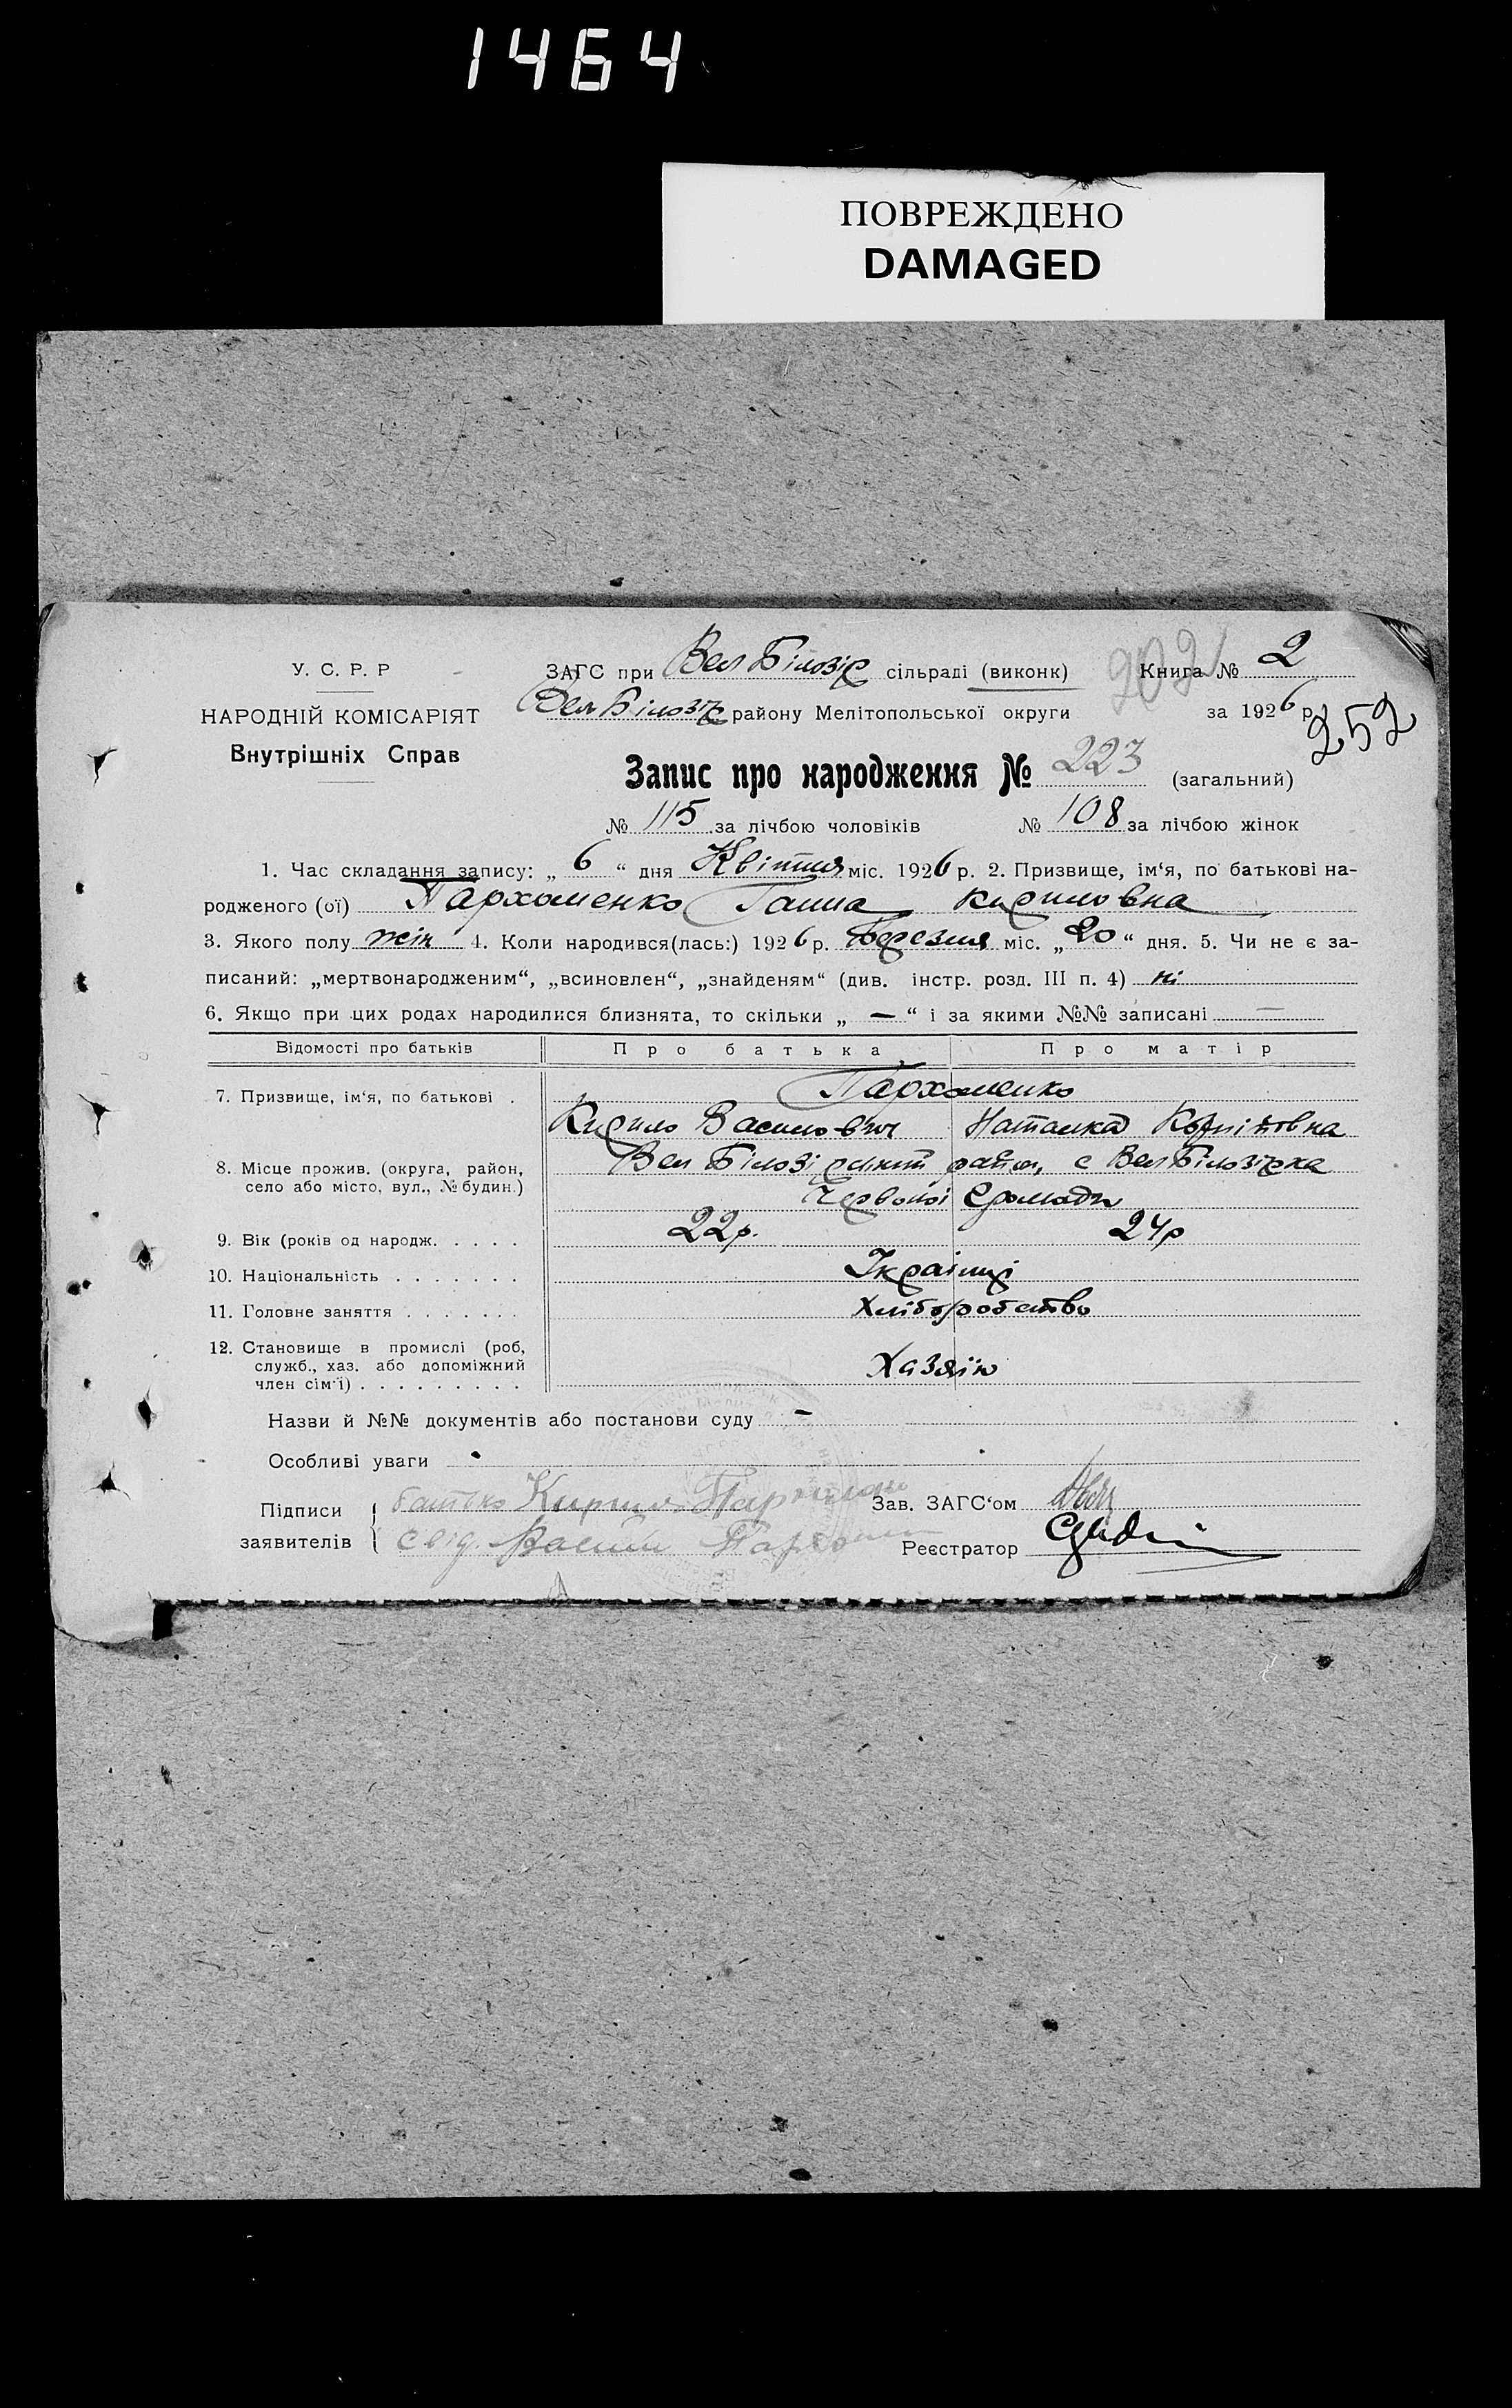 1464
ПОВРЕЖДЕНО
DAMAGED
У. С. Р. Р
НАРОДНІЙ КОМІСАРІЯТ
Внутрішніх Справ
ЗАГС при Вел Білозір сільраді (виконк)
Вел Білозір району Мелітопольської округи
202
Книга № 2
за 1926 р.
252
Запис про народження № 223 (загальний)
№ 115 за лічбою чоловіків № 108 за лічбою жінок
1. Час складання запису: „ 6 “ дня Квітня міс. 1926 р. 2. Призвище, ім‘я, по батькові на-
родженого (ої) Пархоменко Ганна Кириловна
3. Якого полу жін 4. Коли народився(лась:) 1926 р. Березня міс. „ 20 “ дня. 5. Чи не є за-
писаний: „мертвонародженим“, „всиновлен“, „знайденям“ (див. інстр. розд. III п. 4) ні
6. Якщо при цих родах народилися близнята, то скільки „ — “ і за якими №№ записані —
Відомості про батьків Про батька Про матір
7. Призвище, ім‘я, по батькові .
Пархоменко
Кирило Васильович Наталка
8. Місце прожив. (округа, район,
село або місто, вул., № будин.)
Вел Білозірський район, с Вел Білозірка
Червоної Громади
9. Вік (років од народж. . . . . 22р. 24р
10. Національність . . . . . . . Українці
11. Головне заняття . . . . . . . Хліборобство
12. Становище в промислі (роб,
служб., хаз. або допоміжний
член сім‘ї) . . . . . . . . . Хазяїн
Назви й №№ документів або постанови суду —
Особливі уваги
Підписи
заявителів
батько Кирило Пархоменко
свід. Пархоменко
Зав. ЗАГС‘ом
Реєстратор